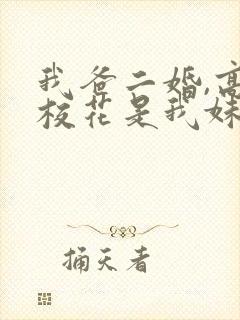 我爸二婚,高
校花是我妹
捅天者